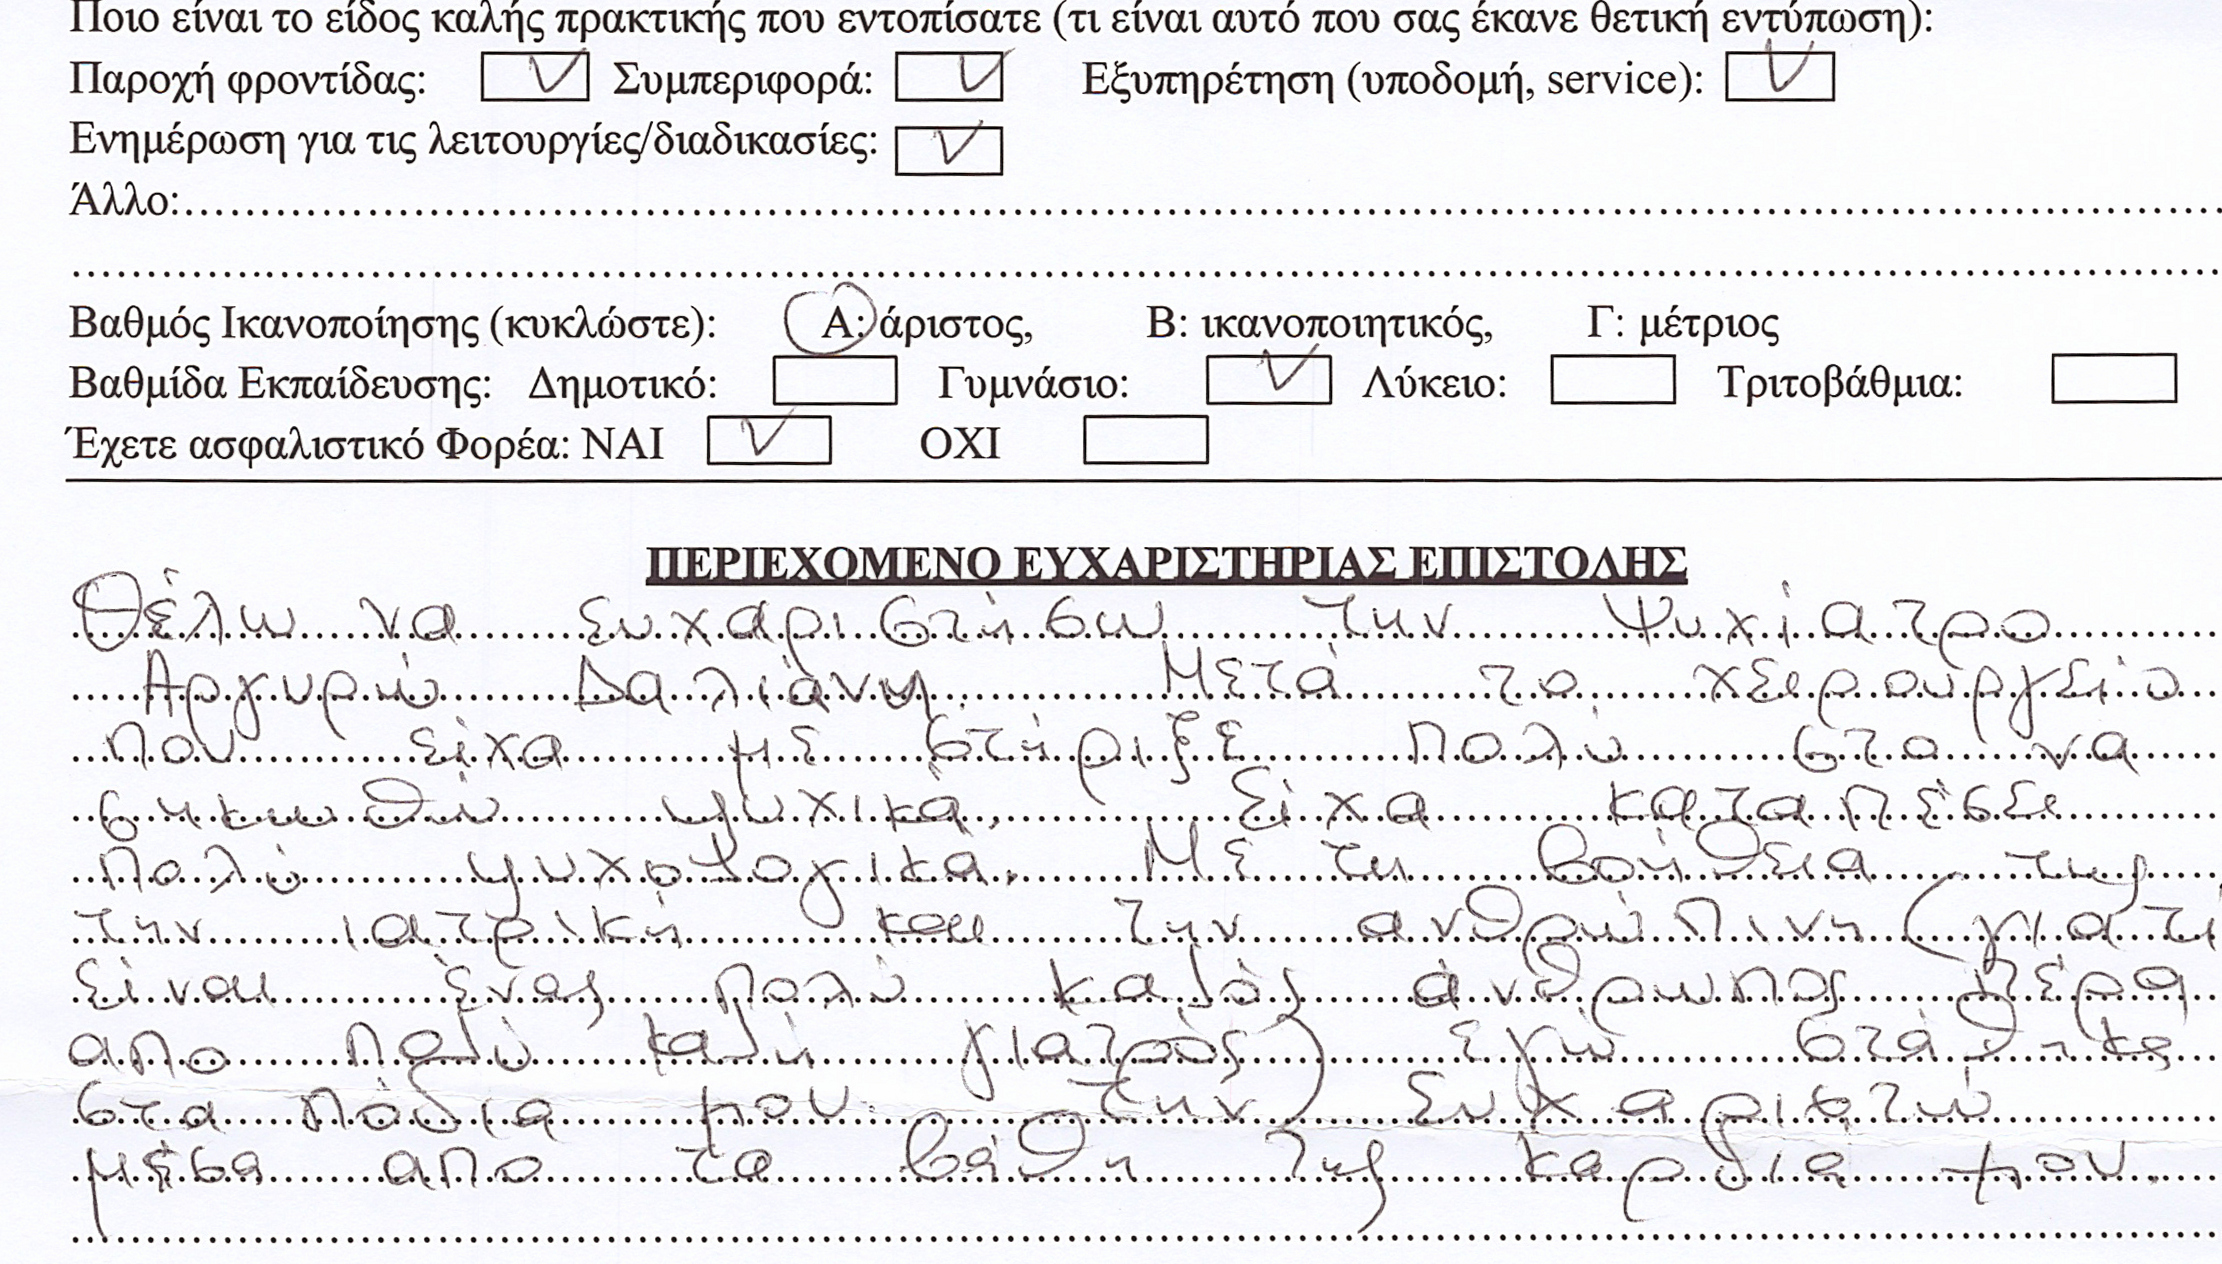 Ποιο είναι το είδος καλής πρακτικής που εντοπίσατε (τι είναι αυτό που σας έκανε θετική εντύπωση):
Παροχή φροντίδας: Συμπεριφορά: Εξυπηρέτηση (υποδομή, service):
Ενημέρωση για τις λειτουργίες/διαδικασίες:
Άλλο:
Βαθμός Ικανοποίησης (κυκλώστε): Α: άριστος, Β: ικανοποιητικός, Γ: μέτριος
Βαθμίδα Εκπαίδευσης: Δημοτικό: Γυμνάσιο: Λύκειο: Τριτοβάθμια:
Έχετε ασφαλιστικό Φορέα: ΝΑΙ ΟΧΙ
ΠΕΡΙΕΧΟΜΕΝΟ ΕΥΧΑΡΙΣΤΗΡΙΑΣ ΕΠΙΣΤΟΛΗΣ
Θέλω να ευχαριστήσω την Ψυχίατρο
Αργυρώ Δαλιάνη. Μετά το χειρουργείο
που είχα με στήριξε πολύ στο να
σηκωθώ ψυχικά, είχα καταπέσει
πολύ ψυχολογικά. Με τη βοήθεια της
την ιατρική και την ανθρώπινη (γιατί
είναι ένας πολύ καλός άνθρωπος πέρα
απο πολύ καλή γιατρός) εγώ στάθηκα
στα πόδια μου. την ευχαριστώ
μέσα απο τα βάθη της καρδιά μου.